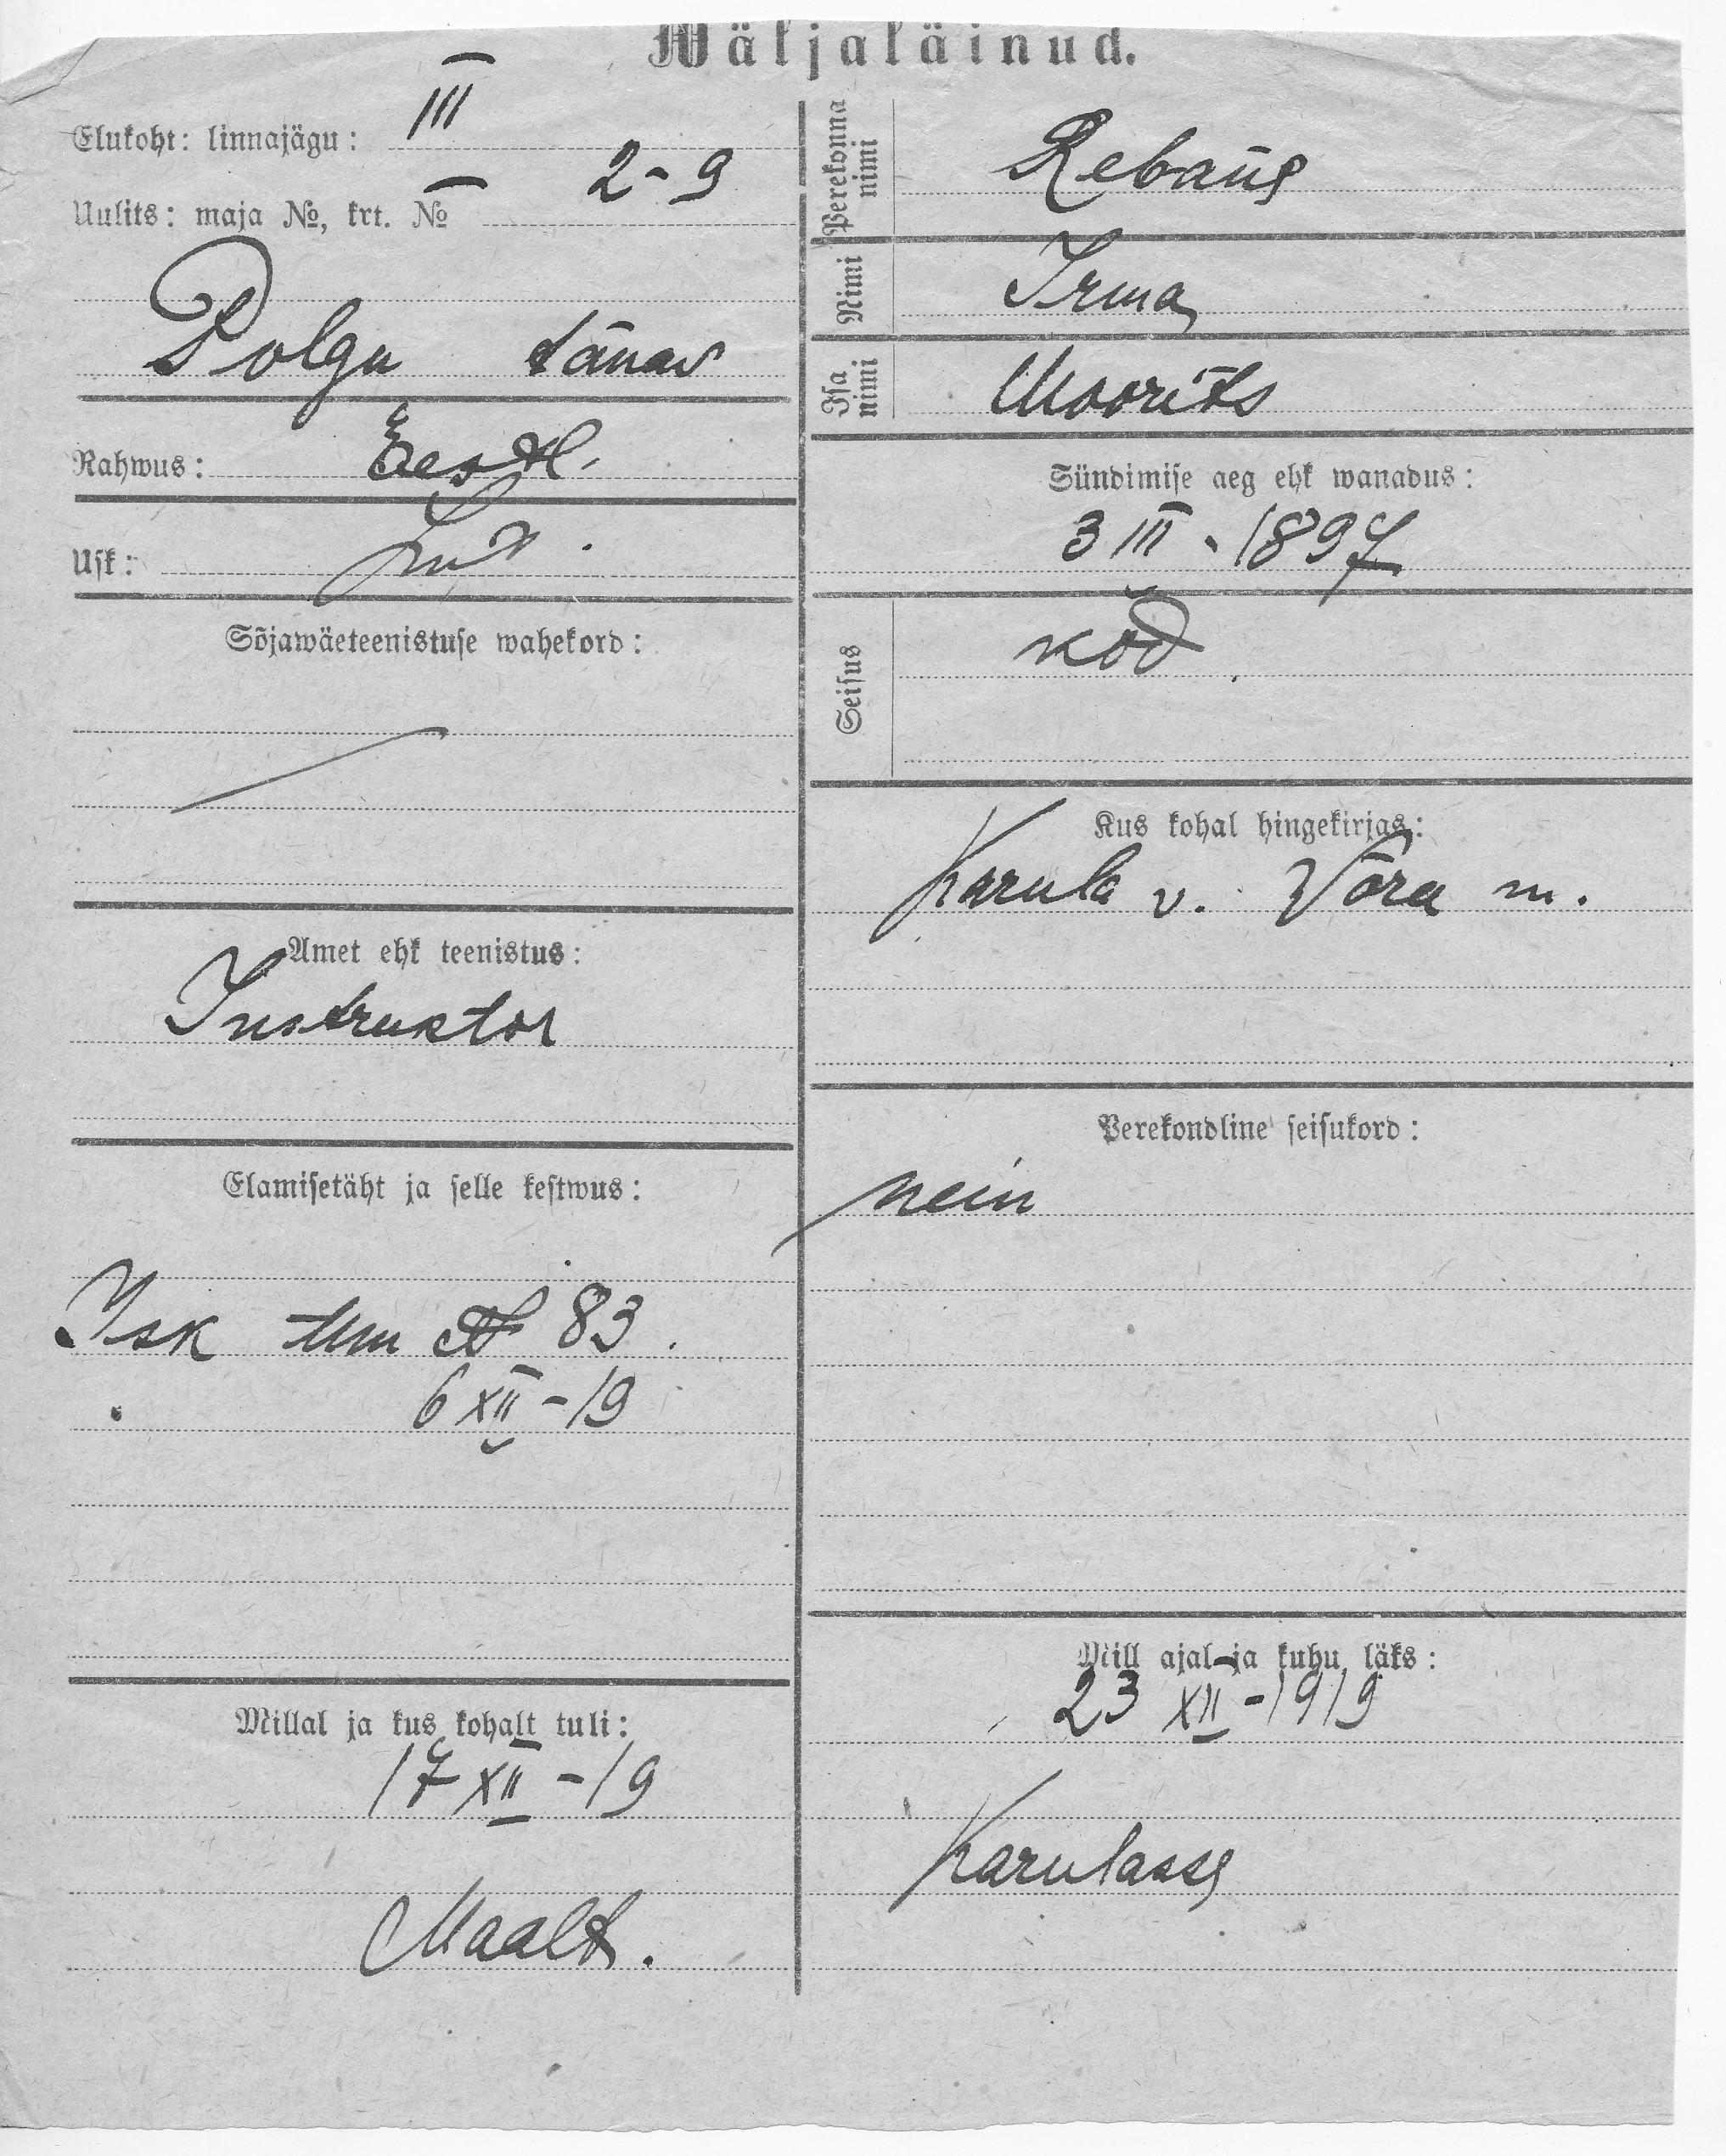 Wäljaläinud.
Elukoht: linnajägu: III
Uulits: maja №, krt. № 2-9
Polgu tänav
Rahwus: Eestl.
Usk: Lut.
Sõjawäeteenistuse wahekord:
Amet ehk teenistus:
Instruktor
Elamisetäht ja selle kestwus:
Isk tun № 83.
6 XII -19
Millal ja kus kohalt tuli:
17 XII -19
Maalt.
Perekonna nimi Rebane
Nimi Irma
Isa nimi Moorits
Sündimise aeg ehk wanadus:
3 III. 1897
Seisus kod
Kus kohal hingekirjas:
Karula v. Võru m.
Perekondline seisukord:
nein
Mill ajal ja kuhu läks:
23 XII -1919
Karulasse